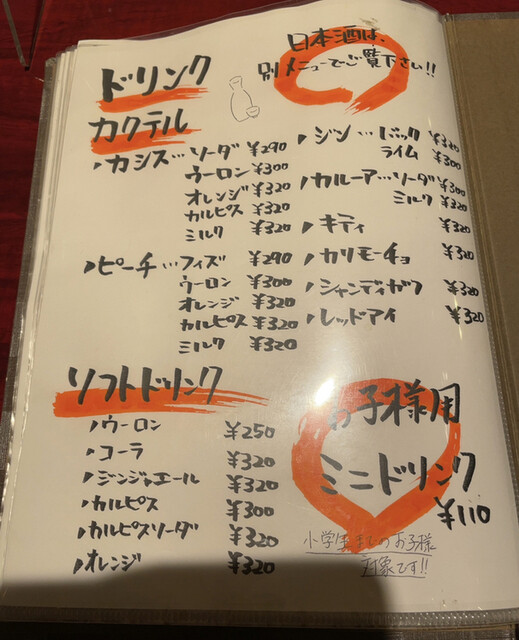 ドリンク
日本酒は、
別メニューでご覧下さい!!
カクテル
カシス…ソーダ ¥290
ウーロン ¥300
オレンジ ¥320
カルピス ¥320
ミルク ¥320
ピーチ…フィズ ¥290
ウーロン ¥300
オレンジ ¥320
カルピス ¥320
ミルク ¥320
ジン…バック ¥320
ライム ¥300
カルーア…ソーダ ¥300
ミルク ¥320
キティ ¥320
カリモーチョ ¥320
シャンディガフ ¥320
レッドアイ ¥320
ソフトドリンク
ウーロン ¥250
コーラ ¥320
ジンジャエール ¥320
カルピス ¥300
カルピスソーダ ¥320
オレンジ ¥320
お子様用
ミニドリンク
¥110
小学生までのお子様
対象です!!